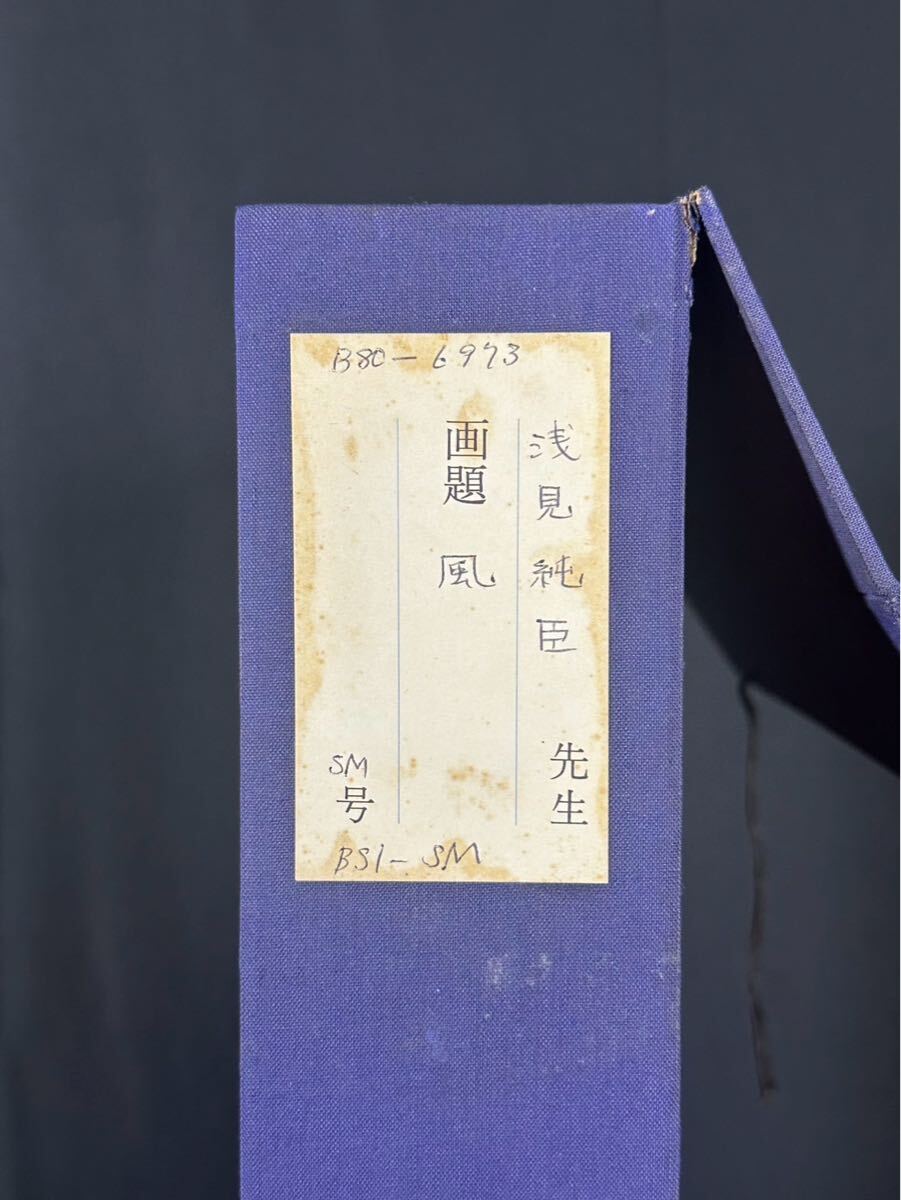 B80-6973
浅見純臣 先生
画題 風
SM号
BS1-SM